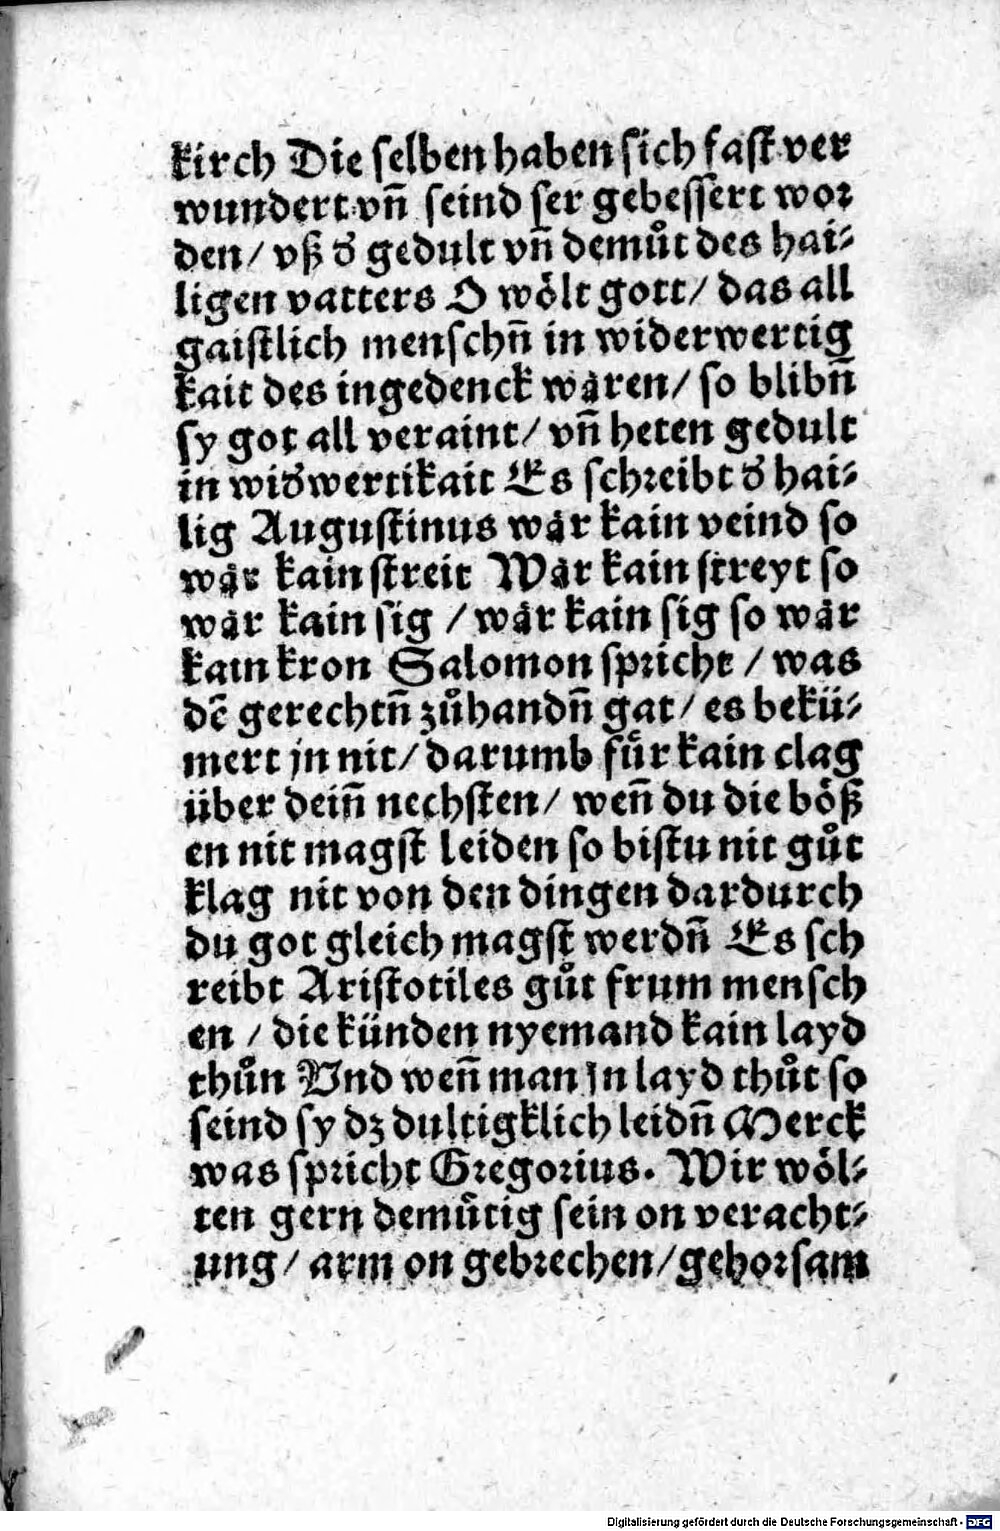 kirch Die selben haben sich fast ver
wundert vñ seind ser gebessert wor
den/ vß ď gedult vñ demůt des hai-
ligen vatters O wölt gott/ das all
gaistlich menschñ in widerwertig
kait des ingedenck wären/ so blibñ
sy got all veraint/ vñ heten gedult
in wiďwertikait Es schreibt ď hai-
lig Augustinus wär kain veind so
wär kain streit Wär kain streyt so
wär kain sig / wär kain sig so wär
kain kron Salomon spricht / was
dē gerechtñ zůhandñ gat/ es bekü-
mert jn nit/ darumb für kain clag
über deiñ nechsten/ weñ du die böß
en nit magst leiden so bistu nit gůt
klag nit von den dingen dardurch
du got gleich magst werdñ Es sch
reibt Aristotiles gůt frum mensch
en / die künden nyemand kain layd
thůn Vnd weñ man jn layd thůt so
seind sy dz dultigklich leidñ Merck
was spricht Gregorius. Wir wöl-
ten gern demůtig sein on veracht-
ung/ arm on gebrechen/ gehorsam
Digitalisierung gefördert durch die Deutsche Forschungsgemeinschaft - DFG